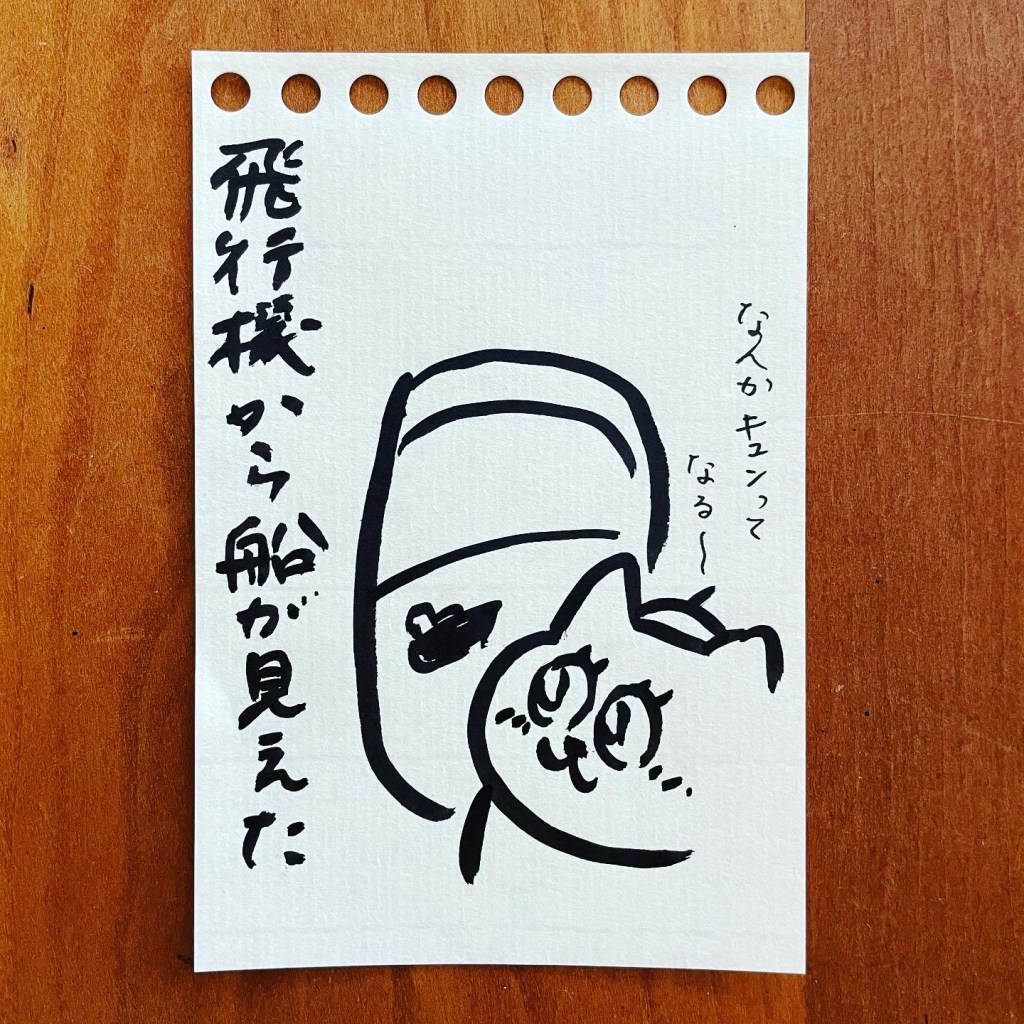 飛行機から船が見えた
なんかキュンって
なる〜